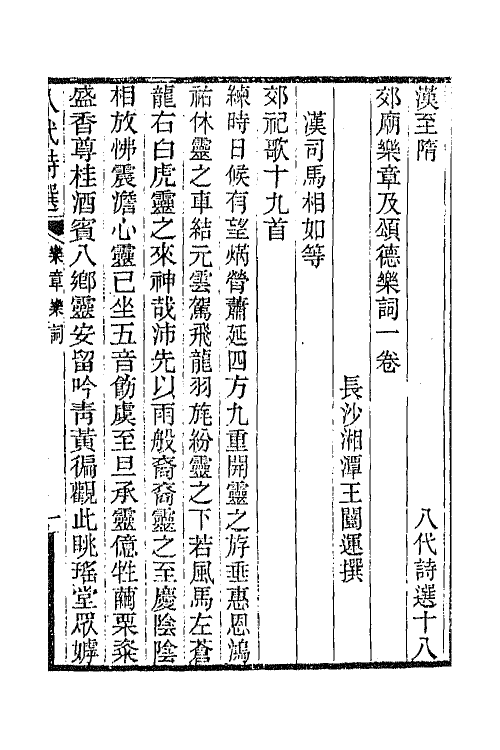 漢至隋　八代詩選十八
郊廟樂章及頌德樂詞一卷
長沙湘潭王闓運撰
漢司馬相如等
郊祀歌十九首
練時日候有望焫膋蕭延四方九重開靈之斿垂惠恩鴻
祐休靈之車結元雲駕飛龍羽旄紛靈之下若風馬左蒼
龍右白虎靈之來神哉沛先以雨般裔裔靈之至慶陰陰
相放怫震澹心靈已坐五音飭虞至旦承靈億牲繭栗粢
盛香尊桂酒賓八鄉靈安留吟靑黃徧觀此眺瑤堂眾嫭
八代詩選　樂章樂詞　一